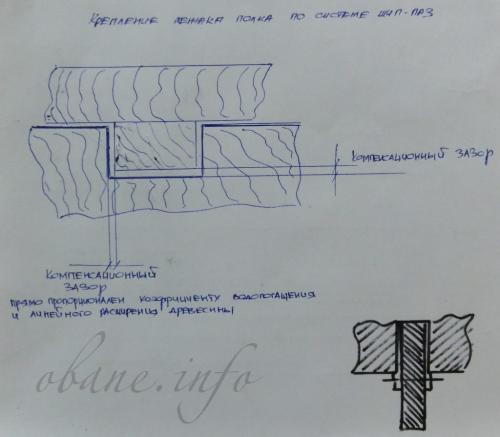 Крепление лежака полка по системе шип-паз
Компенсационный зазор
Компенсационный
зазор
прямо пропорционален коэффициенту водопоглащения
и линейного расширения древесины
obane.info